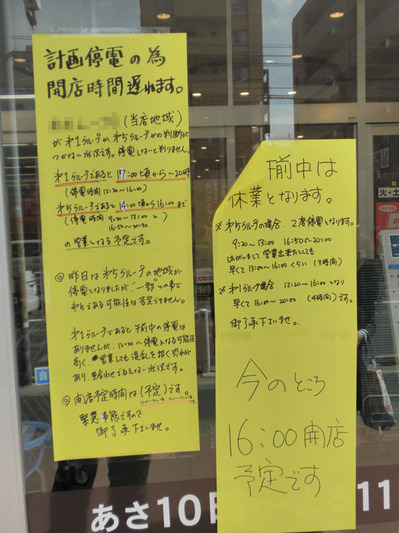 計画停電の為
開店時間遅れます。
(当店地域)
が第1グループか第5グループかの判断が
つかない状況です。停電しないと判りません。
第1グループであると 17:00頃から〜20時
(停電時間 12:20〜16:00)
第5グループであると 14:00頃から16:00まで
(停電時間 9:20〜13:00と
16:50〜20:30
の営業となる予定です。
◎昨日は第5グループの地域が
停電となりましたが、
第1グループであると午前中の停電は
ありませんが、12:20〜停電となる可能性
高く、営業しても混乱を招く恐れが
あり、見合わせざるえない状況です。
◎開店予定時間は(予定)です。
緊急事態ですので
御了承下さいませ。
前中は
休業となります。
※第5グループの場合、2度停電となります。
9:20〜13:00 16:50〜20:00
早くて 13:00〜16:00くらい(3時間)
※第1グループ場合 12:20〜16:00となり
早くて 16:00〜20:00 (4時間)です。
御了承下さいませ。
今のところ
16:00開店
予定です
あさ10
11